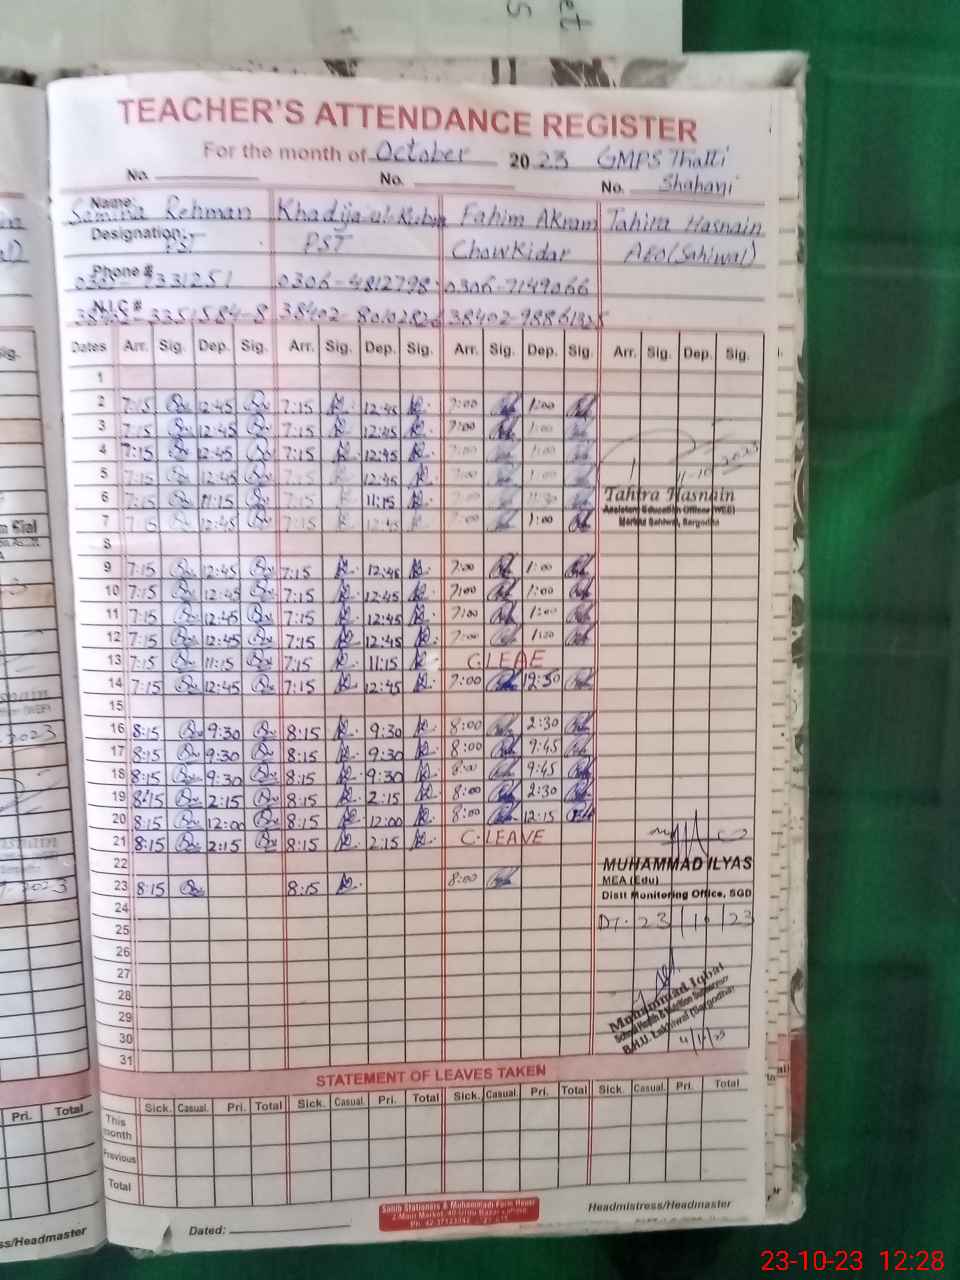 TEACHER'S ATTENDANCE REGISTER
For the month of October 2023 GMPS Thatti
No. No. No. Shahani
Name: Samina Rehman Khadija-ul-Kubra Fahim Akram Tahira Hasnain
Designation: PST PST Chowkidar AEO (Sahiwal)
Phone # 0306-4812798 0306-7149066
N.I.C #
Dates Arr. Sig. Dep. Sig. Arr. Sig. Dep. Sig. Arr. Sig. Dep. Sig. Arr. Sig. Dep. Sig.
1
2 7:15 12:45 7:15 12:45 7:00 1:00
3 7:15 12:45 7:15 12:45 7:00 1:00
4 7:15 12:45 7:15 12:45 7:00 1:00
5 7:15 12:45 7:15 12:45 7:00 1:00
6 7:15 11:15 7:15 11:15 7:00
Tahira Hasnain
Assistant Education Officer (WEE)
Markaz Sahiwal, Sargodha
7 7:15 12:45 7:15 12:45 7:00 1:00
8
9 7:15 12:45 7:15 12:45 7:00 1:00
10 7:15 12:45 7:15 12:45 7:00 1:00
11 7:15 12:45 7:15 12:45 7:00 1:00
12 7:15 12:45 7:15 12:45 7:00 1:00
13 7:15 11:15 7:15 11:15 C.LEAE
14 7:15 12:45 7:15 12:45 7:00 12:30
15
16 8:15 9:30 8:15 9:30 8:00 2:30
17 8:15 9:30 8:15 9:30 8:00 9:45
18 8:15 9:30 8:15 9:30 8:00 9:45
19 8:15 2:15 8:15 2:15 8:00 2:30
20 8:15 12:00 8:15 12:00 8:00 12:15
21 8:15 2:15 8:15 2:15 C.LEAVE
22
MUHAMMAD ILYAS
MEA (Edu)
Distt Monitoring Office, SGD
23 8:15 8:15 8:00
24
DT. 23/10/23
25
26
27
28
29
Muhammad Iqbal
School Health & Nutrition Supervisor
30
31
STATEMENT OF LEAVES TAKEN
Sick. Casual. Pri. Total Sick. Casual. Pri. Total Sick. Casual. Pri. Total Sick. Casual. Pri. Total
This month
Previous
Total
Sahib Stationers & Muhammadi Form House
Dated: Headmistress/Headmaster
Pri. Total
ss/Headmaster
23-10-23 12:28